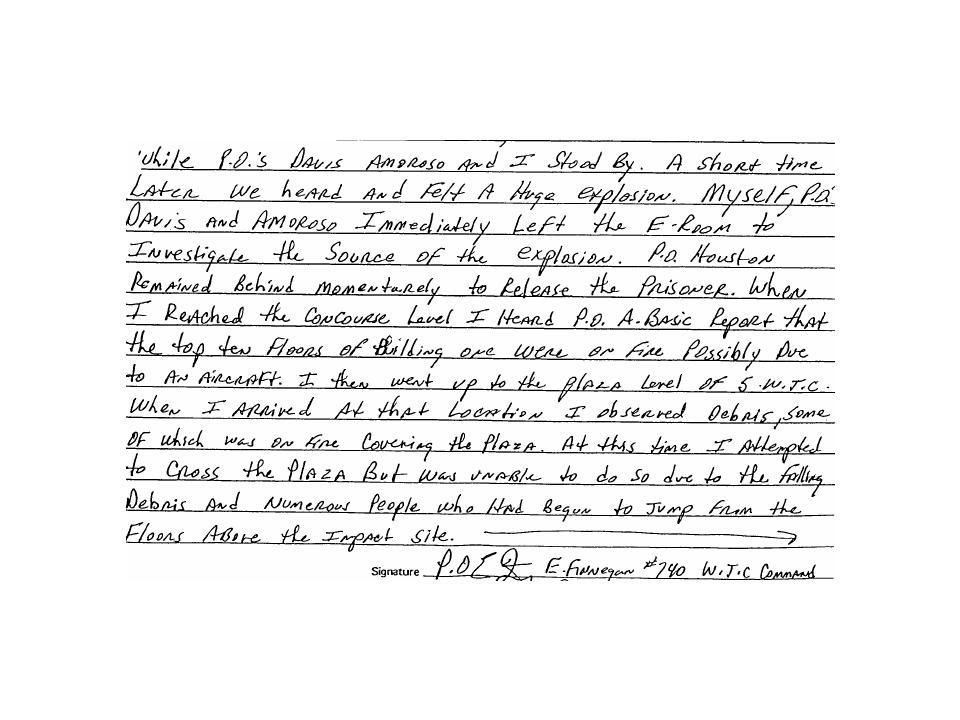 while P.O.'s Davis Amoroso and I Stood By. A short time
Later we heard and Felt A Huge explosion. Myself, P.O.'
Davis and Amoroso Immediately Left the E-Room to
Investigate the Source of the explosion. P.O. Houston
Remained Behind momenturely to Release the Prisoner. When
I Reached the Concourse Level I Heard P.O. A. Basic Report that
the top ten Floors of Building one were on Fire Possibly Due
to An Aircraft. I then went up to the plaza Level of 5 W.T.C.
When I Arrived At that Location I observed Debris, some
of which was on Fire Covering the Plaza. At this time I Attempted
to Cross the Plaza But was unable to do so due to the falling
Debris And Numerous People who Had Begun to Jump From the
Floors Above the Impact site.
Signature P.O. E. Finnegan #740 W.T.C Command